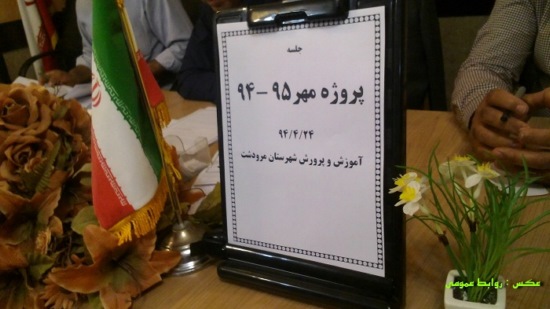 جلسه
پروژه مهر ۹۵ – ۹۴
۹۴/۴/۲۴
آموزش و پرورش شهرستان مرودشت
عکس : روابط عمومی